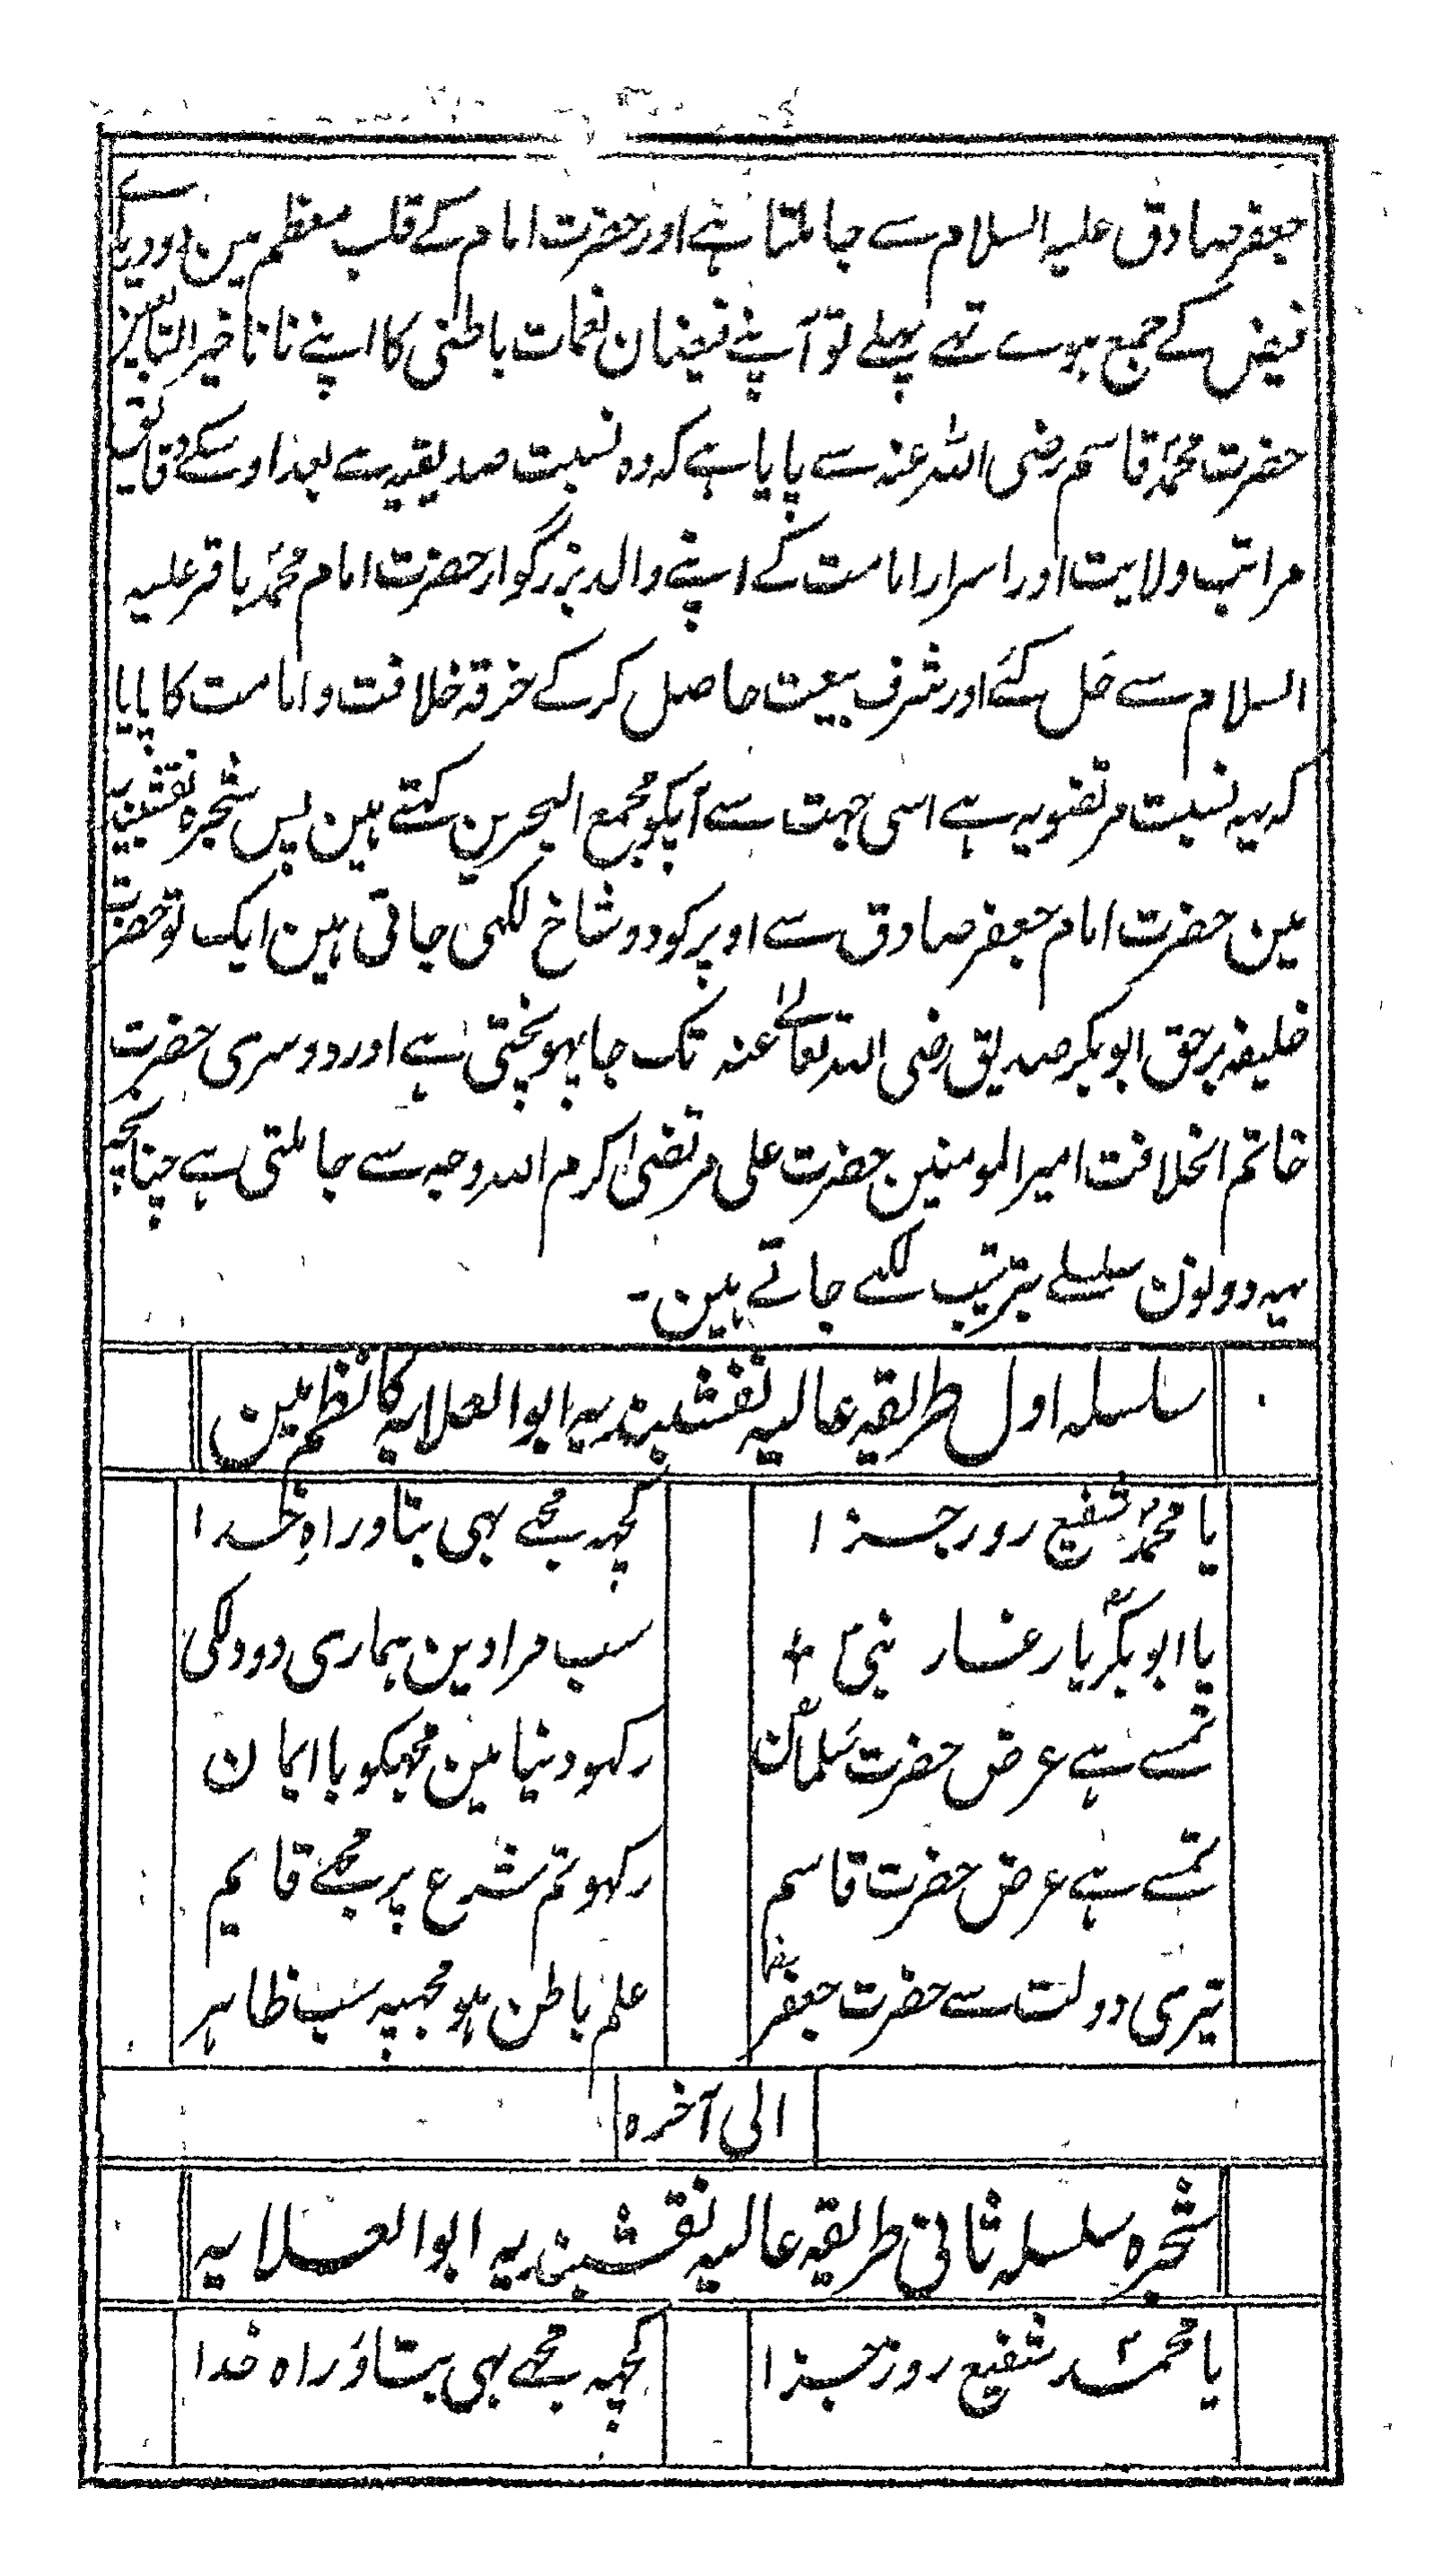 جعفر صادق علیہ السلام سے جا ملتا ہے اور حضرت امام کے قلب معظم مین دو دریا
فیض کے جمع ہوے تہے پہلے تو آپنے فیضان نعمات باطنی کا اپنے نانا خیر التابعین
حضرت محمد قاسم رضی اللہ عنہ سے پایا ہے کہ وہ نسبت صدیقیہ ہے بعد اوسکے
مراتب ولایت اور اسرار امامت کے اپنے والد بزرگوار حضرت امام محمد باقر علیہ
السلام سے حل کئے اور شرف بیعت حاصل کر کے خرقہ خلافت و امامت کا پایا
کہ یہہ نسبت مرتضویہ ہے اسی جہت سے آپکو مجمع البحرین کہتے ہین پس شجرہ نقشبندیہ
مین حضرت امام جعفر صادق سے اوپر کو دو شاخ لکہی جاتی ہین ایک تو حضرت
خلیفہ برحق ابو بکر صدیق رضی اللہ تعالےٰ عنہ تک جا پہونچتی ہے اور دوسری حضرت
خاتم الخلافت امیر المومنین حضرت علی مرتضیٰ کرم اللہ وجہ سے جا ملتی ہے چنانچہ
یہہ دونون سلسلے بترتیب لکہے جاتے ہین۔
سلسلہ اول طریقہ عالیہ نقشبندیہ ابوالعلایہ کا نظم مین
یا محمدؐ شفیع روز جزا کچہہ مجہے بہی بتاو راہِ خدا
یا ابو بکرؓ یار غار نبیؐ + سب مرادین ہماری دو دلکی
تمسے ہے عرض حضرت سلمانؓ رکہو دنیا مین مجہکو با ایمان
تمسے ہے عرض حضرت قاسم رکہو تم شرع پر مجہے قایم
تیری دولت سے حضرت جعفرؓ علم باطن ہو مجہپہ سب ظاہر
الی آخرہ
شجرہ سلسلہ ثانی طریقہ عالیہ نقشبندیہ ابوالعلایہ
یا محمدؐ شفیع روز جزا کچہہ مجہے بہی بتاوَ راہ خدا